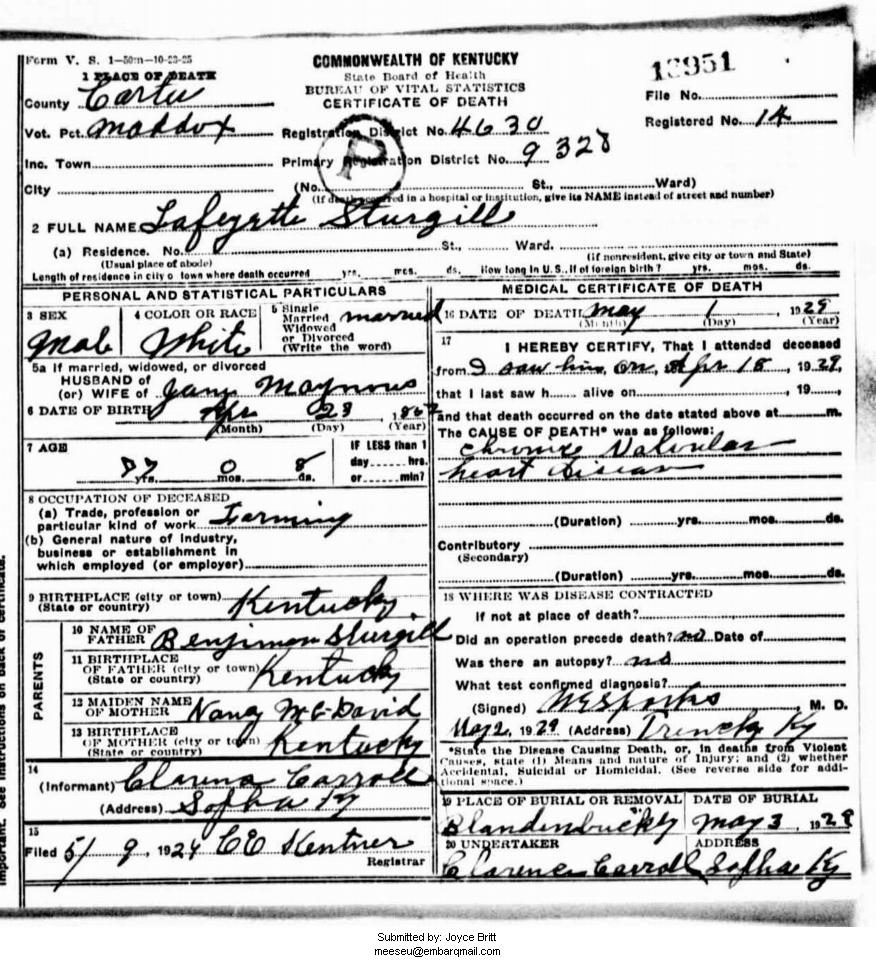 Form V. S. 1—50m—10-23-25
COMMONWEALTH OF KENTUCKY
State Board of Health
BUREAU OF VITAL STATISTICS
CERTIFICATE OF DEATH
13951
File No.
Registered No. 14
1 PLACE OF DEATH
County Carter
Vot. Pct. Maddox
Registration District No. 4630
Inc. Town
Primary Registration District No. 9328
City
(No. St., Ward)
(If death occurred in a hospital or institution, give its NAME instead of street and number)
2 FULL NAME Lafeyette Sturgill
(a) Residence. No. St., Ward.
(Usual place of abode) (If nonresident, give city or town and State)
Length of residence in city o town where death occurred yrs. mos. ds. How long in U. S., If of foreign birth? yrs. mos. ds.
PERSONAL AND STATISTICAL PARTICULARS
3 SEX Male
4 COLOR OR RACE White
5 Single Married Widowed or Divorced (Write the word) married
5a If married, widowed, or divorced
HUSBAND of
(or) WIFE of Jany
6 DATE OF BIRTH Apr 23
(Month) (Day) (Year)
7 AGE
yrs. 0 mos. 8 ds.
IF LESS than 1
day hrs.
or min?
8 OCCUPATION OF DECEASED
(a) Trade, profession or
particular kind of work Farming
(b) General nature of Industry,
business or establishment in
which employed (or employer)
9 BIRTHPLACE (city or town)
(State or country) Kentucky
PARENTS
10 NAME OF
FATHER Benjimon Sturgill
11 BIRTHPLACE
OF FATHER (city or town)
(State or country) Kentucky
12 MAIDEN NAME
OF MOTHER Nancy McDavid
13 BIRTHPLACE
OF MOTHER (city or town)
(State or country) Kentucky
14
(Informant) Clarence Carroll
(Address) Sopha Ky
15
Filed 5/9, 1929 CE Kentner
Registrar
MEDICAL CERTIFICATE OF DEATH
16 DATE OF DEATH May 1 1929
(Month) (Day) (Year)
17
I HEREBY CERTIFY, That I attended deceased
from I saw him, on, Apr 18, 1929,
that I last saw h alive on, 19
and that death occurred on the date stated above at m.
The CAUSE OF DEATH* was as follows:
Chronic Valvular
heart disease
(Duration) yrs. mos. ds.
Contributory
(Secondary)
(Duration) yrs. mos. ds.
18 WHERE WAS DISEASE CONTRACTED
If not at place of death?
Did an operation precede death? no Date of
Was there an autopsy? no
What test confirmed diagnosis?
(Signed) W E Sparks M. D.
May 2, 1929 (Address) Ky
*State the Disease Causing Death, or, in deaths from Violent
Causes, state (1) Means and nature of Injury; and (2) whether
Accidental, Suicidal or Homicidal. (See reverse side for addi-
tional space.)
19 PLACE OF BURIAL OR REMOVAL
DATE OF BURIAL
May 3, 1929
20 UNDERTAKER
ADDRESS
Clarence Carroll Sopha Ky
important. See instructions on back of certificate.
Submitted by: Joyce Britt
meeseu@embarqmail.com